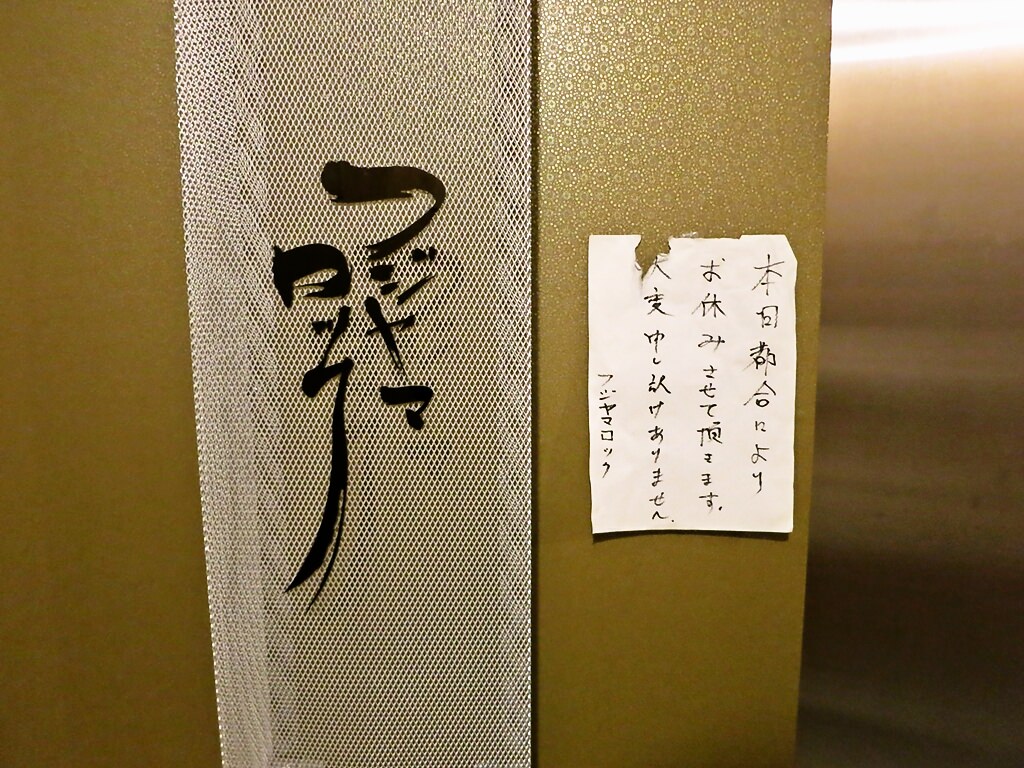 フジヤマ
ロック
本日都合により
お休みさせて頂きます。
大変申し訳けありません。
フジヤマロック